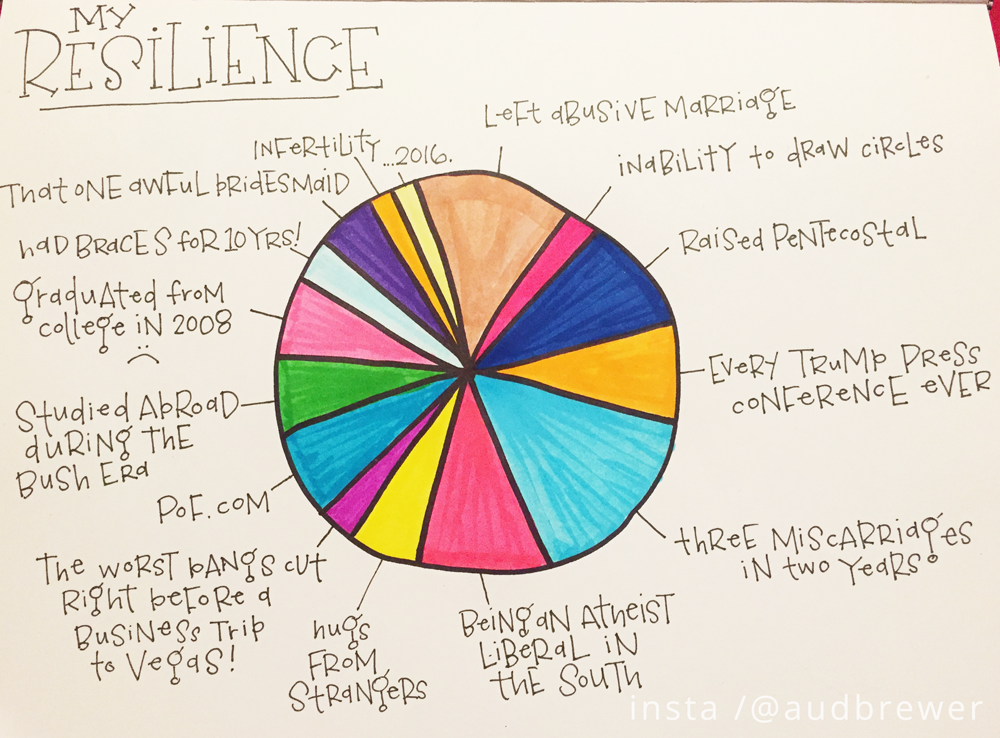 MY
RESILIENCE
LEFT ABUSIVE MARRIAGE
INABILITY to DRAW CIRCLES
RAISED PENTECOSTAL
EVERY TRUMP PRESS
CONFERENCE EVER
tHREE MISCARRIAGES
IN two YEARS.
BEING AN AtHEIST
LIBERAL IN
tHE SOUTH
hugs
FROM
STRANGERS
The WORST BANGS CUT
RIGHT BEFORE a
BUSINESS TRIP
to VEGAS!
POF.COM
Studied ABROAD
duRING THE
BUSH ERA
graduAted froM
college iN 2008
:(
haD BRACES foR 10 YRS!
THAT ONE AWFUL BRIDESMAID
INFERTILITY
...2016.
insta /@audbrewer